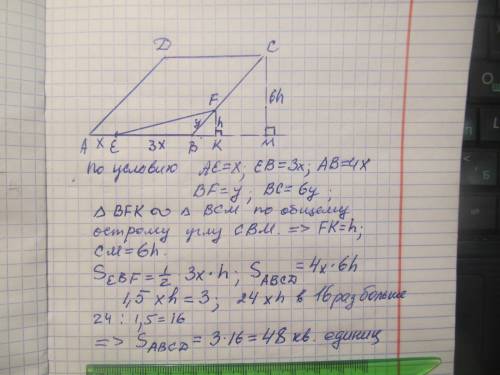 D C
F 6h
y h
A x E 3x B K M
По условию AE=x, EB=3x; AB=4x
BF=y, BC=6y;
△ BFK ∾ △ BCM по общему
острому углу CBM. => FK=h;
CM=6h.
S EBF = 1/2 3x·h; S ABCD = 4x·6h
1,5xh=3; 24xh в 16 раз больше
24 : 1,5=16
=> S ABCD = 3·16=48 кв. единиц